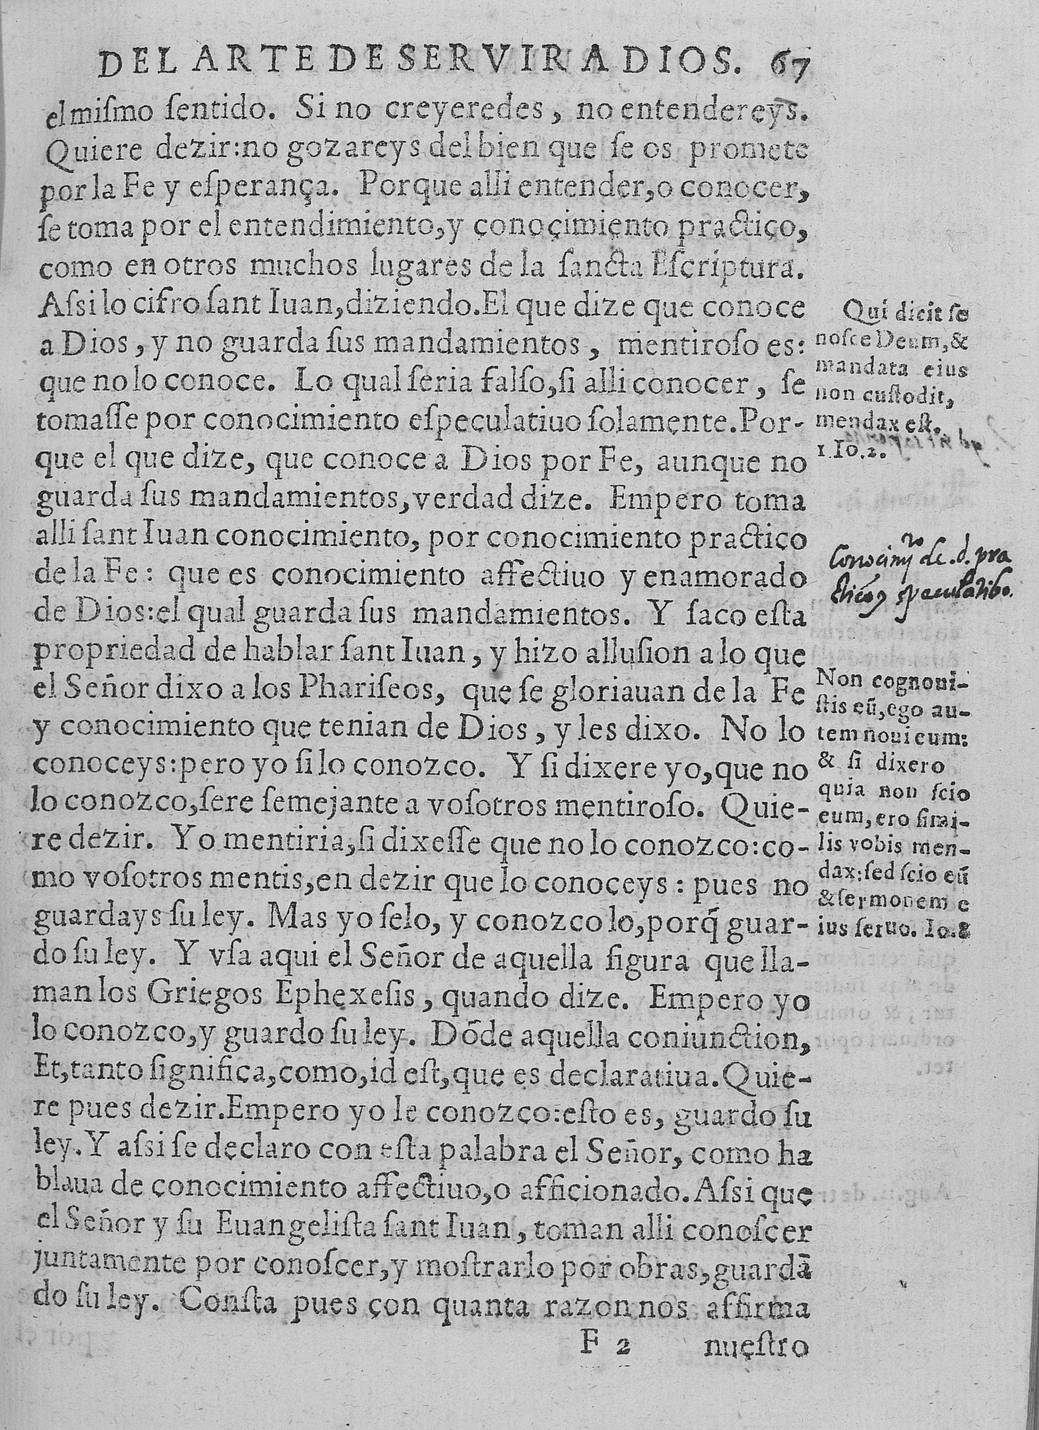 DEL ARTE DE SERVIR A DIOS. 67
el miſmo ſentido. Si no creyeredes, no entendereys.
Quiere dezir: no gozareys del bien que ſe os promete
por la Fe y eſperança. Porque alli entender, o conocer,
ſe toma por el entendimiento, y conocimiento practico,
como en otros muchos lugares de la ſancta Eſcriptura.
Aſsi lo cifro ſant Iuan, diziendo. El que dize que conoce
a Dios, y no guarda ſus mandamientos, mentiroſo es:
que no lo conoce. Lo qual ſeria falſo, ſi alli conocer, ſe
tomaſſe por conocimiento eſpeculatiuo ſolamente. Por-
que el que dize, que conoce a Dios por Fe, aunque no
guarda ſus mandamientos, verdad dize. Empero toma
alli ſant Iuan conocimiento, por conocimiento practico
de la Fe: que es conocimiento affectiuo y enamorado
de Dios: el qual guarda ſus mandamientos. Y ſaco eſta
propriedad de hablar ſant Iuan, y hizo alluſion a lo que
el Señor dixo a los Phariſeos, que ſe gloriauan de la Fe
y conocimiento que tenian de Dios, y les dixo. No lo
conoceys: pero yo ſi lo conozco. Y ſi dixere yo, que no
lo conozco, ſere ſemejante a voſotros mentiroſo. Quie-
re dezir. Yo mentiria, ſi dixeſſe que no lo conozco: co-
mo voſotros mentis, en dezir que lo conoceys: pues no
guardays ſu ley. Mas yo ſelo, y conozco lo, porq̃ guar-
do ſu ley. Y vſa aqui el Señor de aquella figura que lla-
man los Griegos Ephexeſis, quando dize. Empero yo
lo conozco, y guardo ſu ley. Dõde aquella coniunction,
Et, tanto ſignifica, como, id eſt, que es declaratiua. Quie-
re pues dezir. Empero yo le conozco: eſto es, guardo ſu
ley. Y aſsi ſe declaro con eſta palabra el Señor, como ha
blaua de conocimiento affectiuo, o afficionado. Aſsi que
el Señor y ſu Euangeliſta ſant Iuan, toman alli conoſcer
juntamente por conoſcer, y moſtrarlo por obras, guardã
do ſu ley. Conſta pues con quanta razon nos affirma
F 2 nueſtro
Qui dicit ſe
noſce Deum, &
mandata eius
non cuſtodit,
mendax eſt.
1. Io. 2.
Conocimᵗᵒ de d. pra
ctico y speculatibo.
Non cognoui-
ſtis eũ, ego au-
tem noui eum:
& ſi dixero
quia non ſcio
eum, ero ſimi-
lis vobis men-
dax: ſed ſcio eũ
& ſermonem e
ius ſeruo. Io. 8